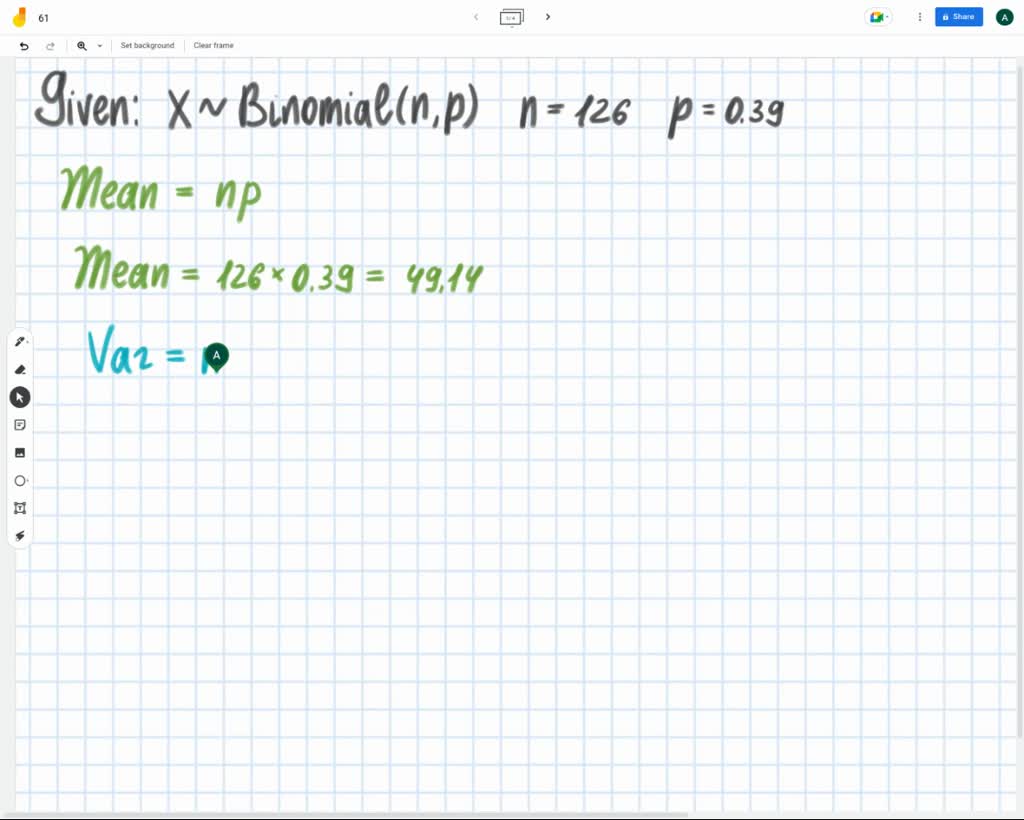 61
1/4
Share
A
Set background
Clear frame
Given: X ~ Binomial(n,p) n = 126 p = 0.39
Mean = np
Mean = 126 × 0.39 = 49.14
Var =
A